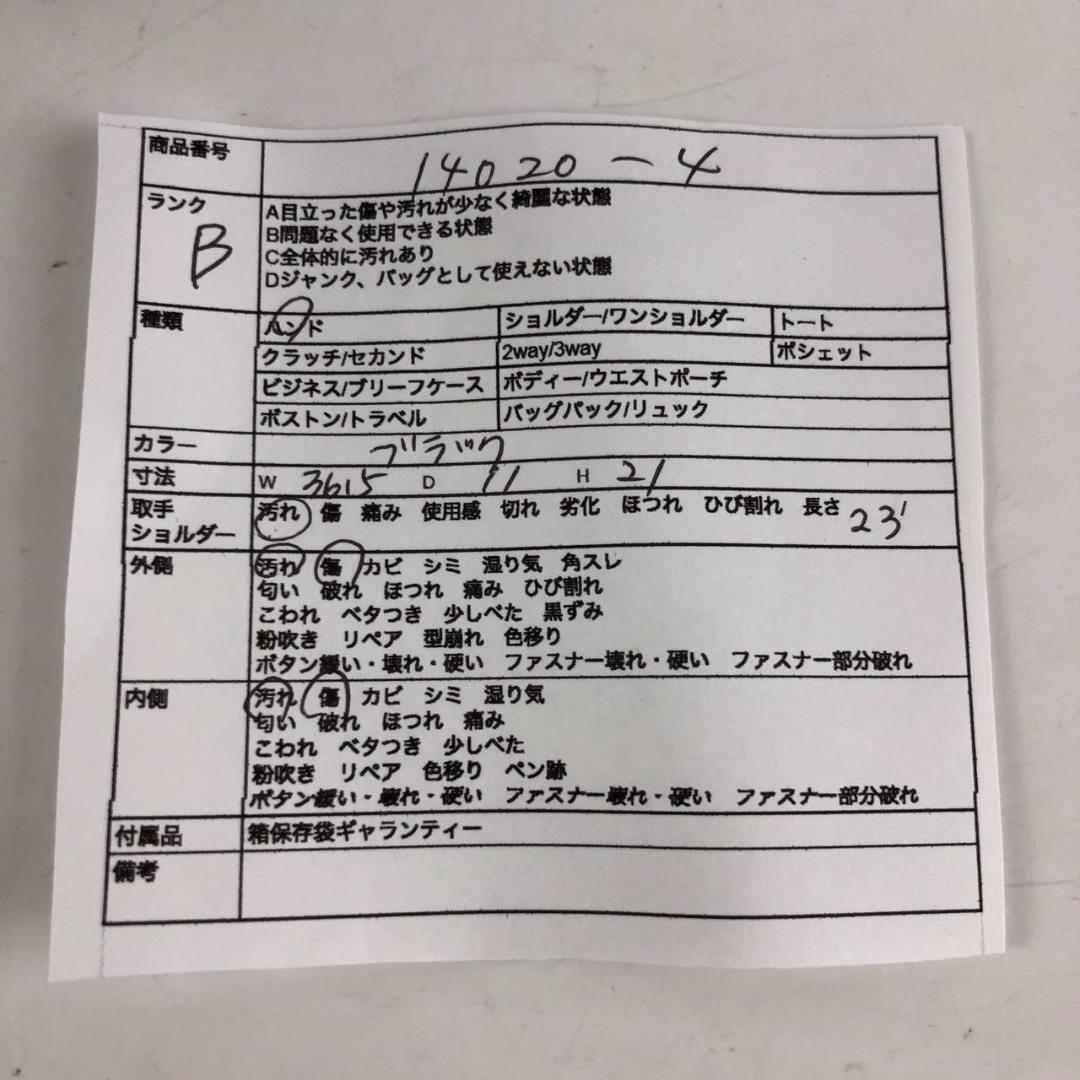 商品番号 14020-4
ランク B
A目立った傷や汚れが少なく綺麗な状態
B問題なく使用できる状態
C全体的に汚れあり
Dジャンク、バッグとして使えない状態
種類 ハンド ショルダー/ワンショルダー トート
クラッチ/セカンド 2way/3way ポシェット
ビジネス/ブリーフケース ボディー/ウエストポーチ
ボストン/トラベル バッグパック/リュック
カラー ブラック
寸法 W 36.5 D 11 H 21
取手 汚れ 傷 痛み 使用感 切れ 劣化 ほつれ ひび割れ 長さ 23
ショルダー
外側 汚れ 傷 カビ シミ 湿り気 角スレ
匂い 破れ ほつれ 痛み ひび割れ
こわれ ベタつき 少しべた 黒ずみ
粉吹き リペア 型崩れ 色移り
ボタン緩い・壊れ・硬い ファスナー壊れ・硬い ファスナー部分破れ
内側 汚れ 傷 カビ シミ 湿り気
匂い 破れ ほつれ 痛み
こわれ ベタつき 少しべた
粉吹き リペア 色移り ペン跡
ボタン緩い・壊れ・硬い ファスナー壊れ・硬い ファスナー部分破れ
付属品 箱保存袋ギャランティー
備考